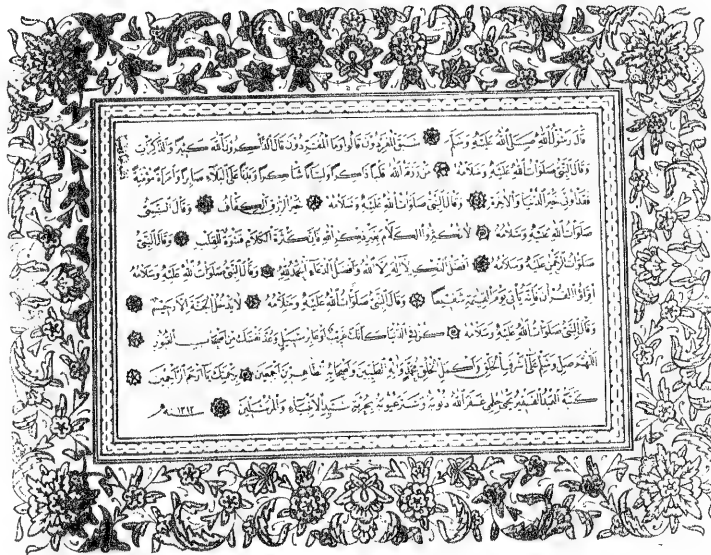 قال رسول الله صلى الله عليه وسلم سبق المفردون قالوا وما المفردون قال الذاكرون الله كثيرا والذاكرات
وقال النبي صلوات الله عليه وسلامه من رزقه الله قلبا ذاكرا ولسانا شاكرا وبدنا على البلاء صابرا وامرأة مؤمنة
فقد اوتي خير الدنيا والاخرة وقال النبي صلوات الله عليه وسلامه خير الرزق الكفاف وقال النبي
صلوات الله عليه وسلامه لا تكثروا الكلام بغير ذكر الله فان كثرة الكلام قسوة للقلب وقال النبي
صلوات الرحمن عليه وسلامه افضل الذكر لا اله الا الله وافضل الدعاء الحمد لله وقال النبي صلوات الله عليه وسلامه
اقرؤا القران فانه يأتي يوم القيمة شفيعا وقال النبي صلوات الله عليه وسلامه لا يدخل الجنة الا رحيم
وقال النبي صلوات الله عليه وسلامه كن في الدنيا كأنك غريب او عابر سبيل وعد نفسك من اصحاب القبور
اللهم صل وسلم على اشرف الخلق واكمل الخلق محمد واله الطيبين واصحابه الطاهرين اجمعين برحمتك يا ارحم الراحمين
كتبه العبد الفقير يحيى حلمي غفر الله ذنوبه وستر عيوبه بحرمة سيد الانبياء والمرسلين سنه ١٣١٢